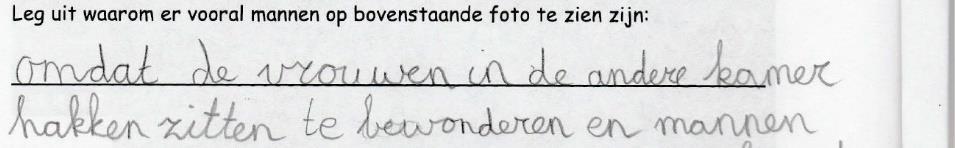 Leg uit waarom er vooral mannen op bovenstaande foto te zien zijn:
omdat de vrouwen in de andere kamer
hakken zitten te bewonderen en mannen